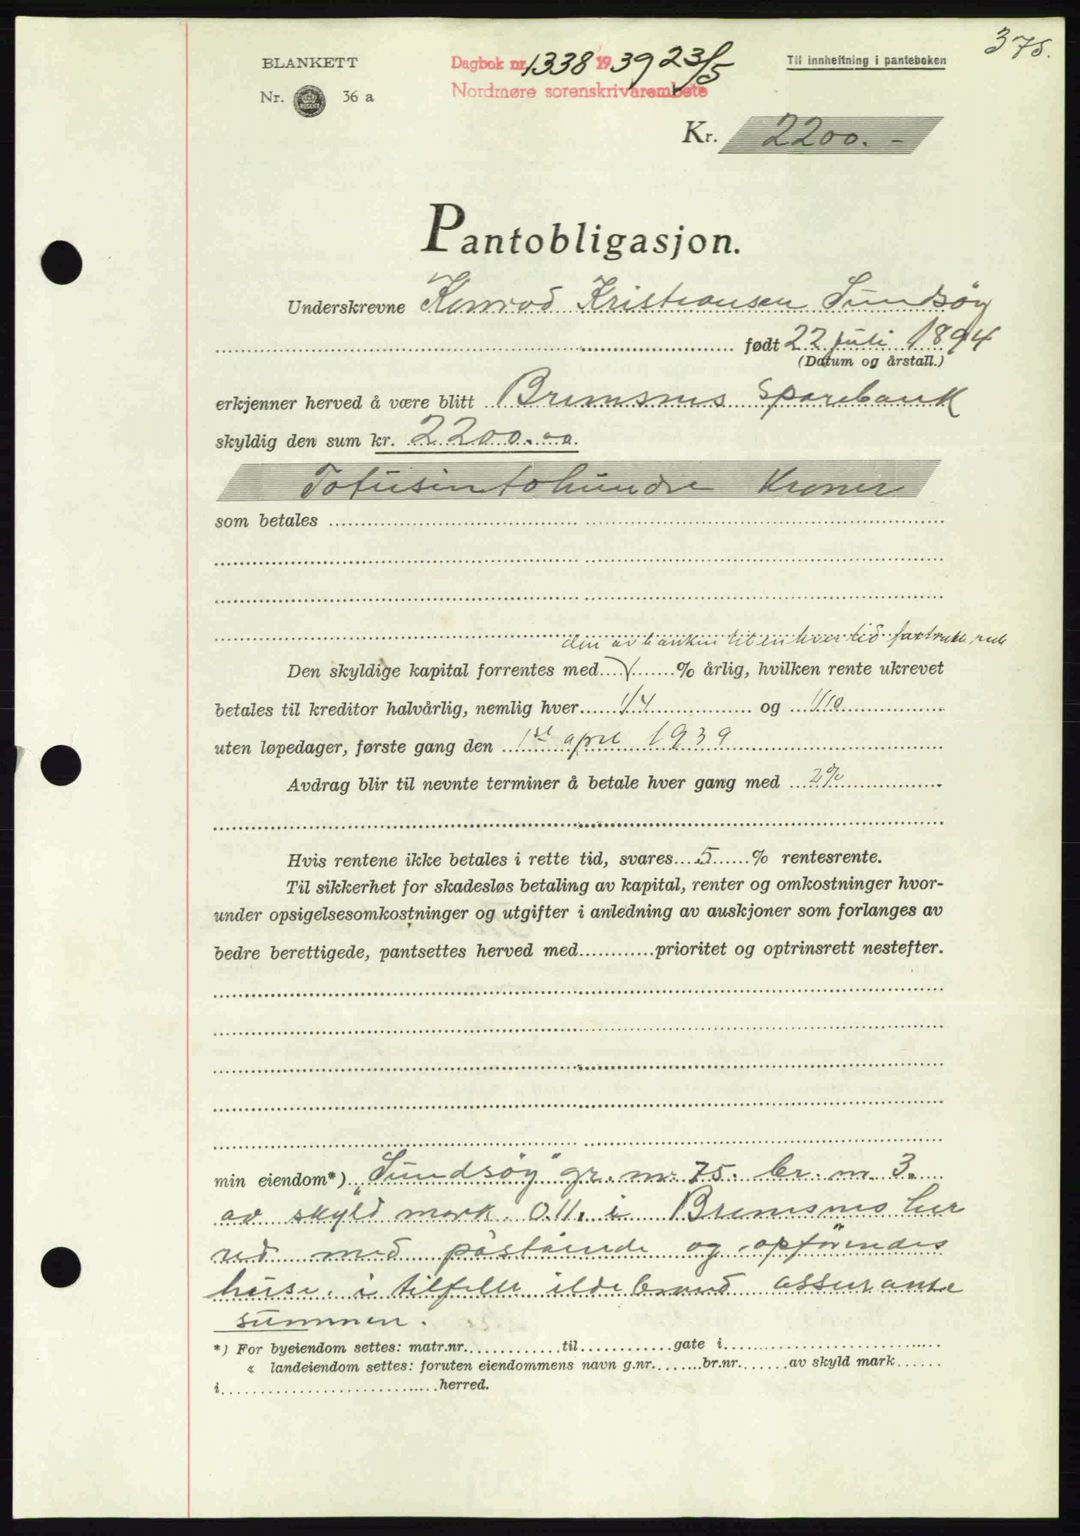 375.
BLANKETT
Nr. 36 a
Dagbok nr. 1338 1939 23/5
Nordmøre sorenskrivarembete
Til innheftning i panteboken
Kr. 2200.-
Pantobligasjon.
Underskrevne Konrad Kristiansen Sundsøy
født 22 juli 1894
(Datum og årstall.)
erkjenner herved å være blitt Bremsnes Sparebank
skyldig den sum kr. 2200.00
Totusintohundre Kroner
som betales
den av banken til enhver tid fastsatte rente
Den skyldige kapital forrentes med % årlig, hvilken rente ukrevet
betales til kreditor halvårlig, nemlig hver 1/4 og 1/10
uten løpedager, første gang den 1st april 1939
Avdrag blir til nevnte terminer å betale hver gang med 2%
Hvis rentene ikke betales i rette tid, svares 5 % rentesrente.
Til sikkerhet for skadesløs betaling av kapital, renter og omkostninger hvor-
under opsigelsesomkostninger og utgifter i anledning av auskjoner som forlanges av
bedre berettigede, pantsettes herved med prioritet og optrinsrett nestefter.
min eiendom*) "Sundsøy" gr. nr. 75. br. nr. 3.
av skyld mark. 0.11. i Bremsnes her
red med påstående og opførendes
huse, i tilfelle ildebrand assuranse
summen.
*) For byeiendom settes: matr.nr. til gate i
" landeiendom settes: foruten eiendommens navn g.nr. br.nr. av skyld mark
i herred.